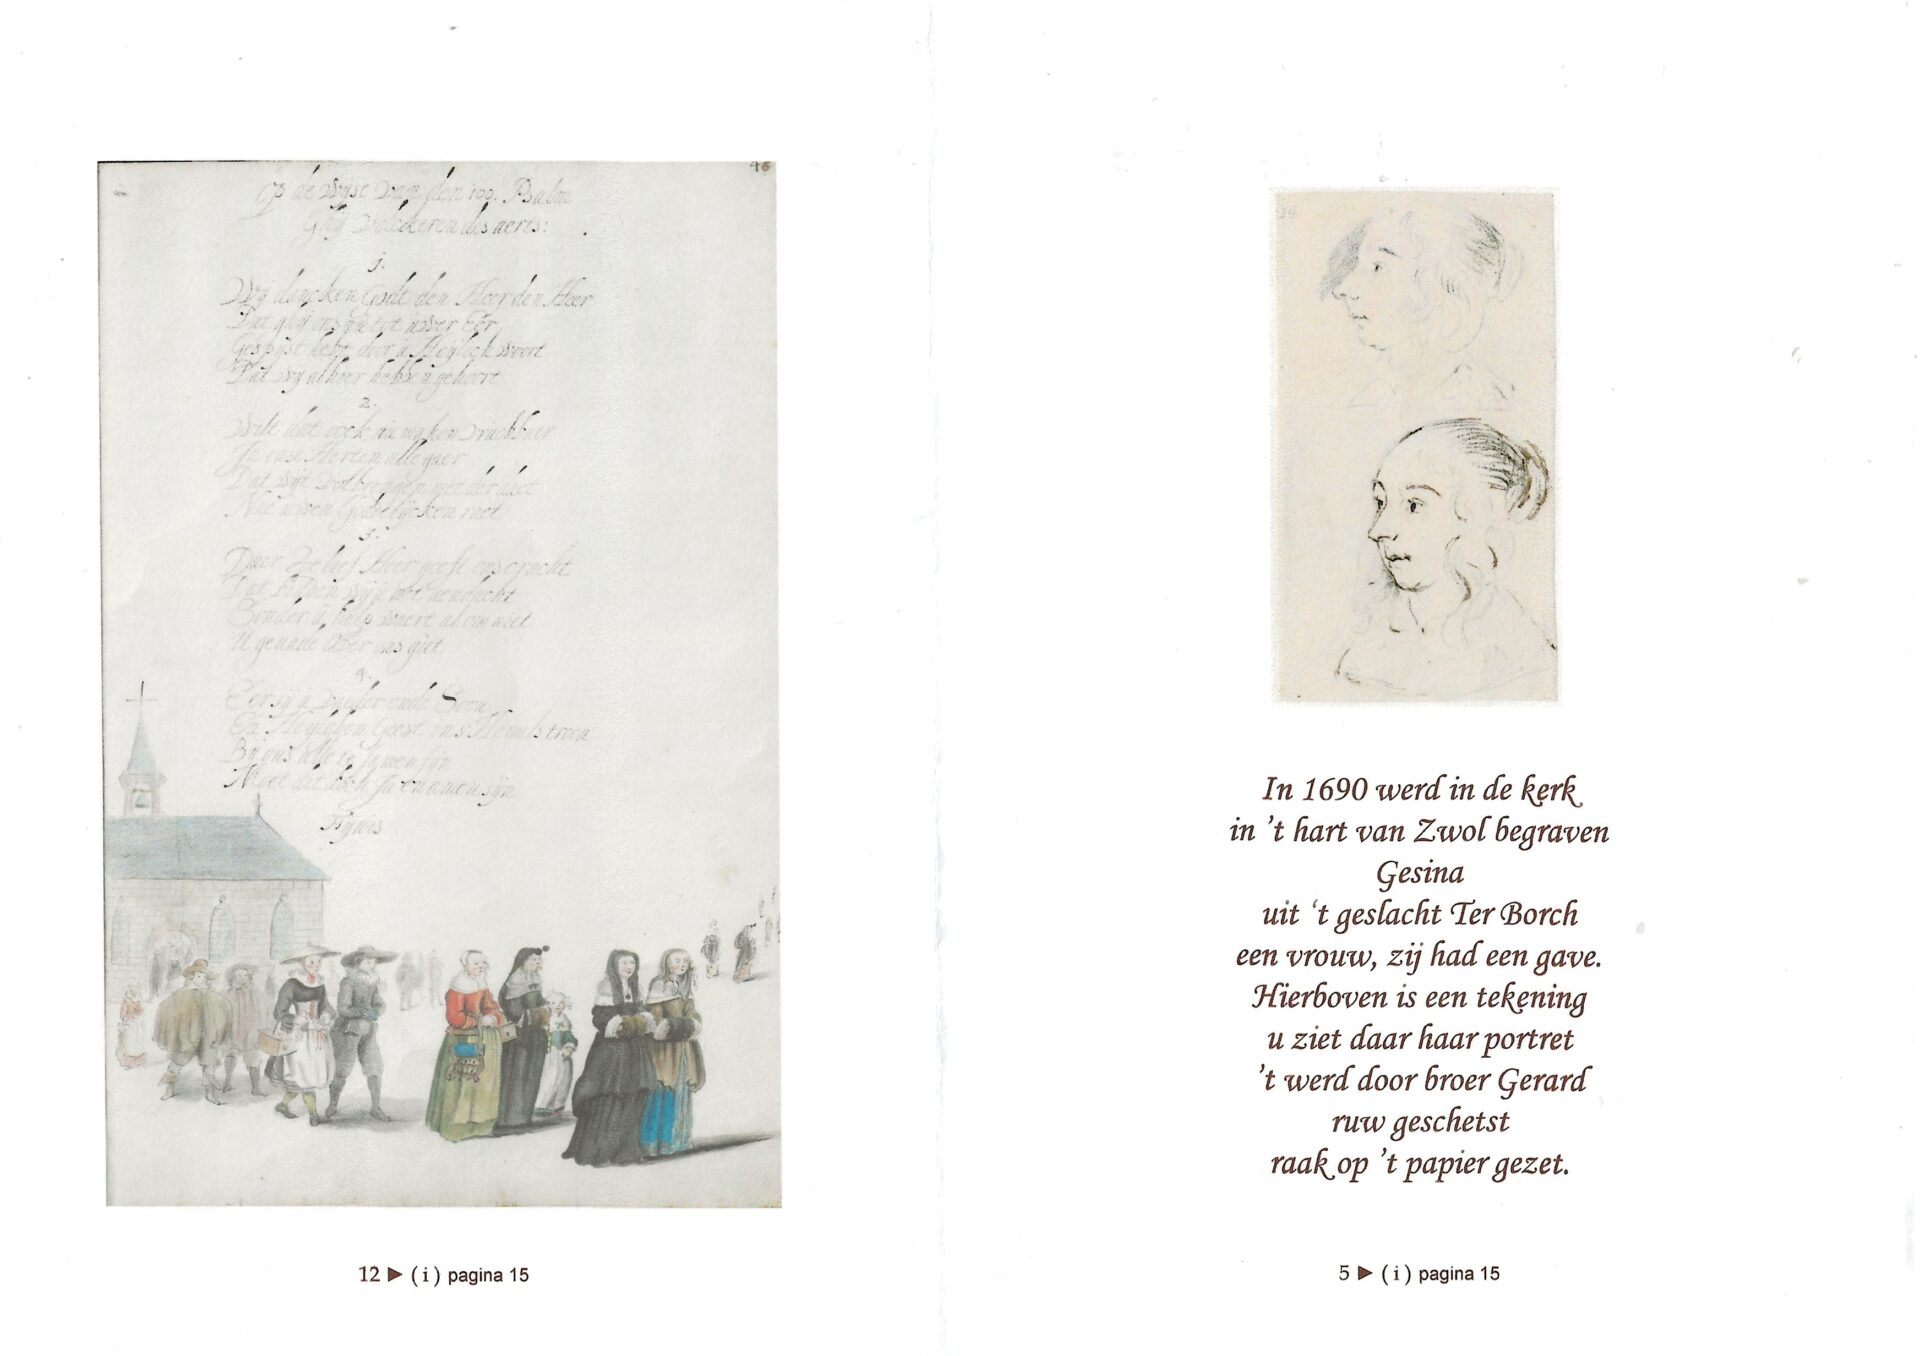 46
Op de Wijse Van den 100. Psalm
Ghij Volckeren des aerts:
1.
Wij dancken Godt den Heer den Heer
Dat ghij ons nu tot uwer Eer
Gespijst hebt door u Heijlich Woort
Dat wij al hier hebben gehoort
2.
Wilt dat oock nu maken Vruchbaer
In onse Herten alle gaer
Dat wijt Volbrengen met der daet
Nae uwen Goddelijcken raet
3.
Daer toe lief Heer geeft ons cracht
Dat bidden wij met aendacht
Sonder u hulp waert al om niet
U genade Over ons giet
4.
Eer sij u Vader ende Soon
En Heylighen Geest in s'Hemels troon
Bij ons alle te samen fijn
Moet dit doch Ja en amen sijn
Fijnis
12 ▶ (i) pagina 15
34
In 1690 werd in de kerk
in 't hart van Zwol begraven
Gesina
uit 't geslacht Ter Borch
een vrouw, zij had een gave.
Hierboven is een tekening
u ziet daar haar portret
't werd door broer Gerard
ruw geschetst
raak op 't papier gezet.
5 ▶ (i) pagina 15